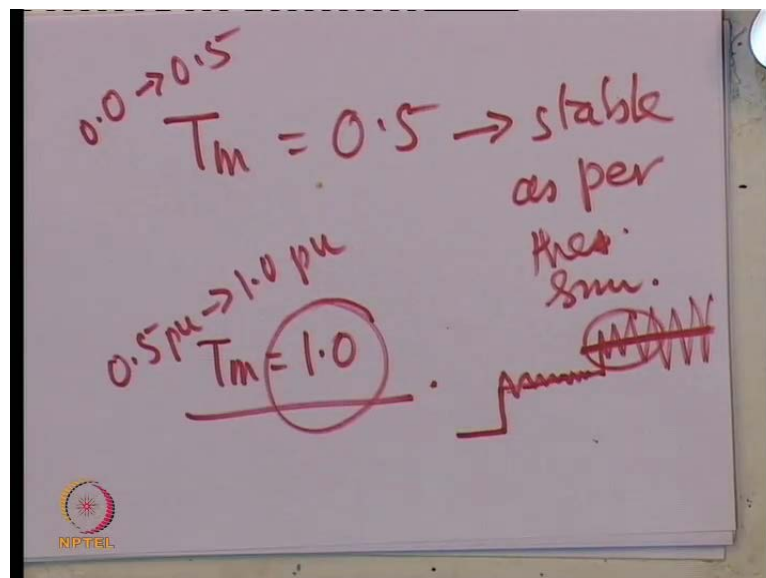 0.0 → 0.5
Tm = 0.5 → stable
as per
sim.
0.5 pu → 1.0 pu
Tm = 1.0
NPTEL